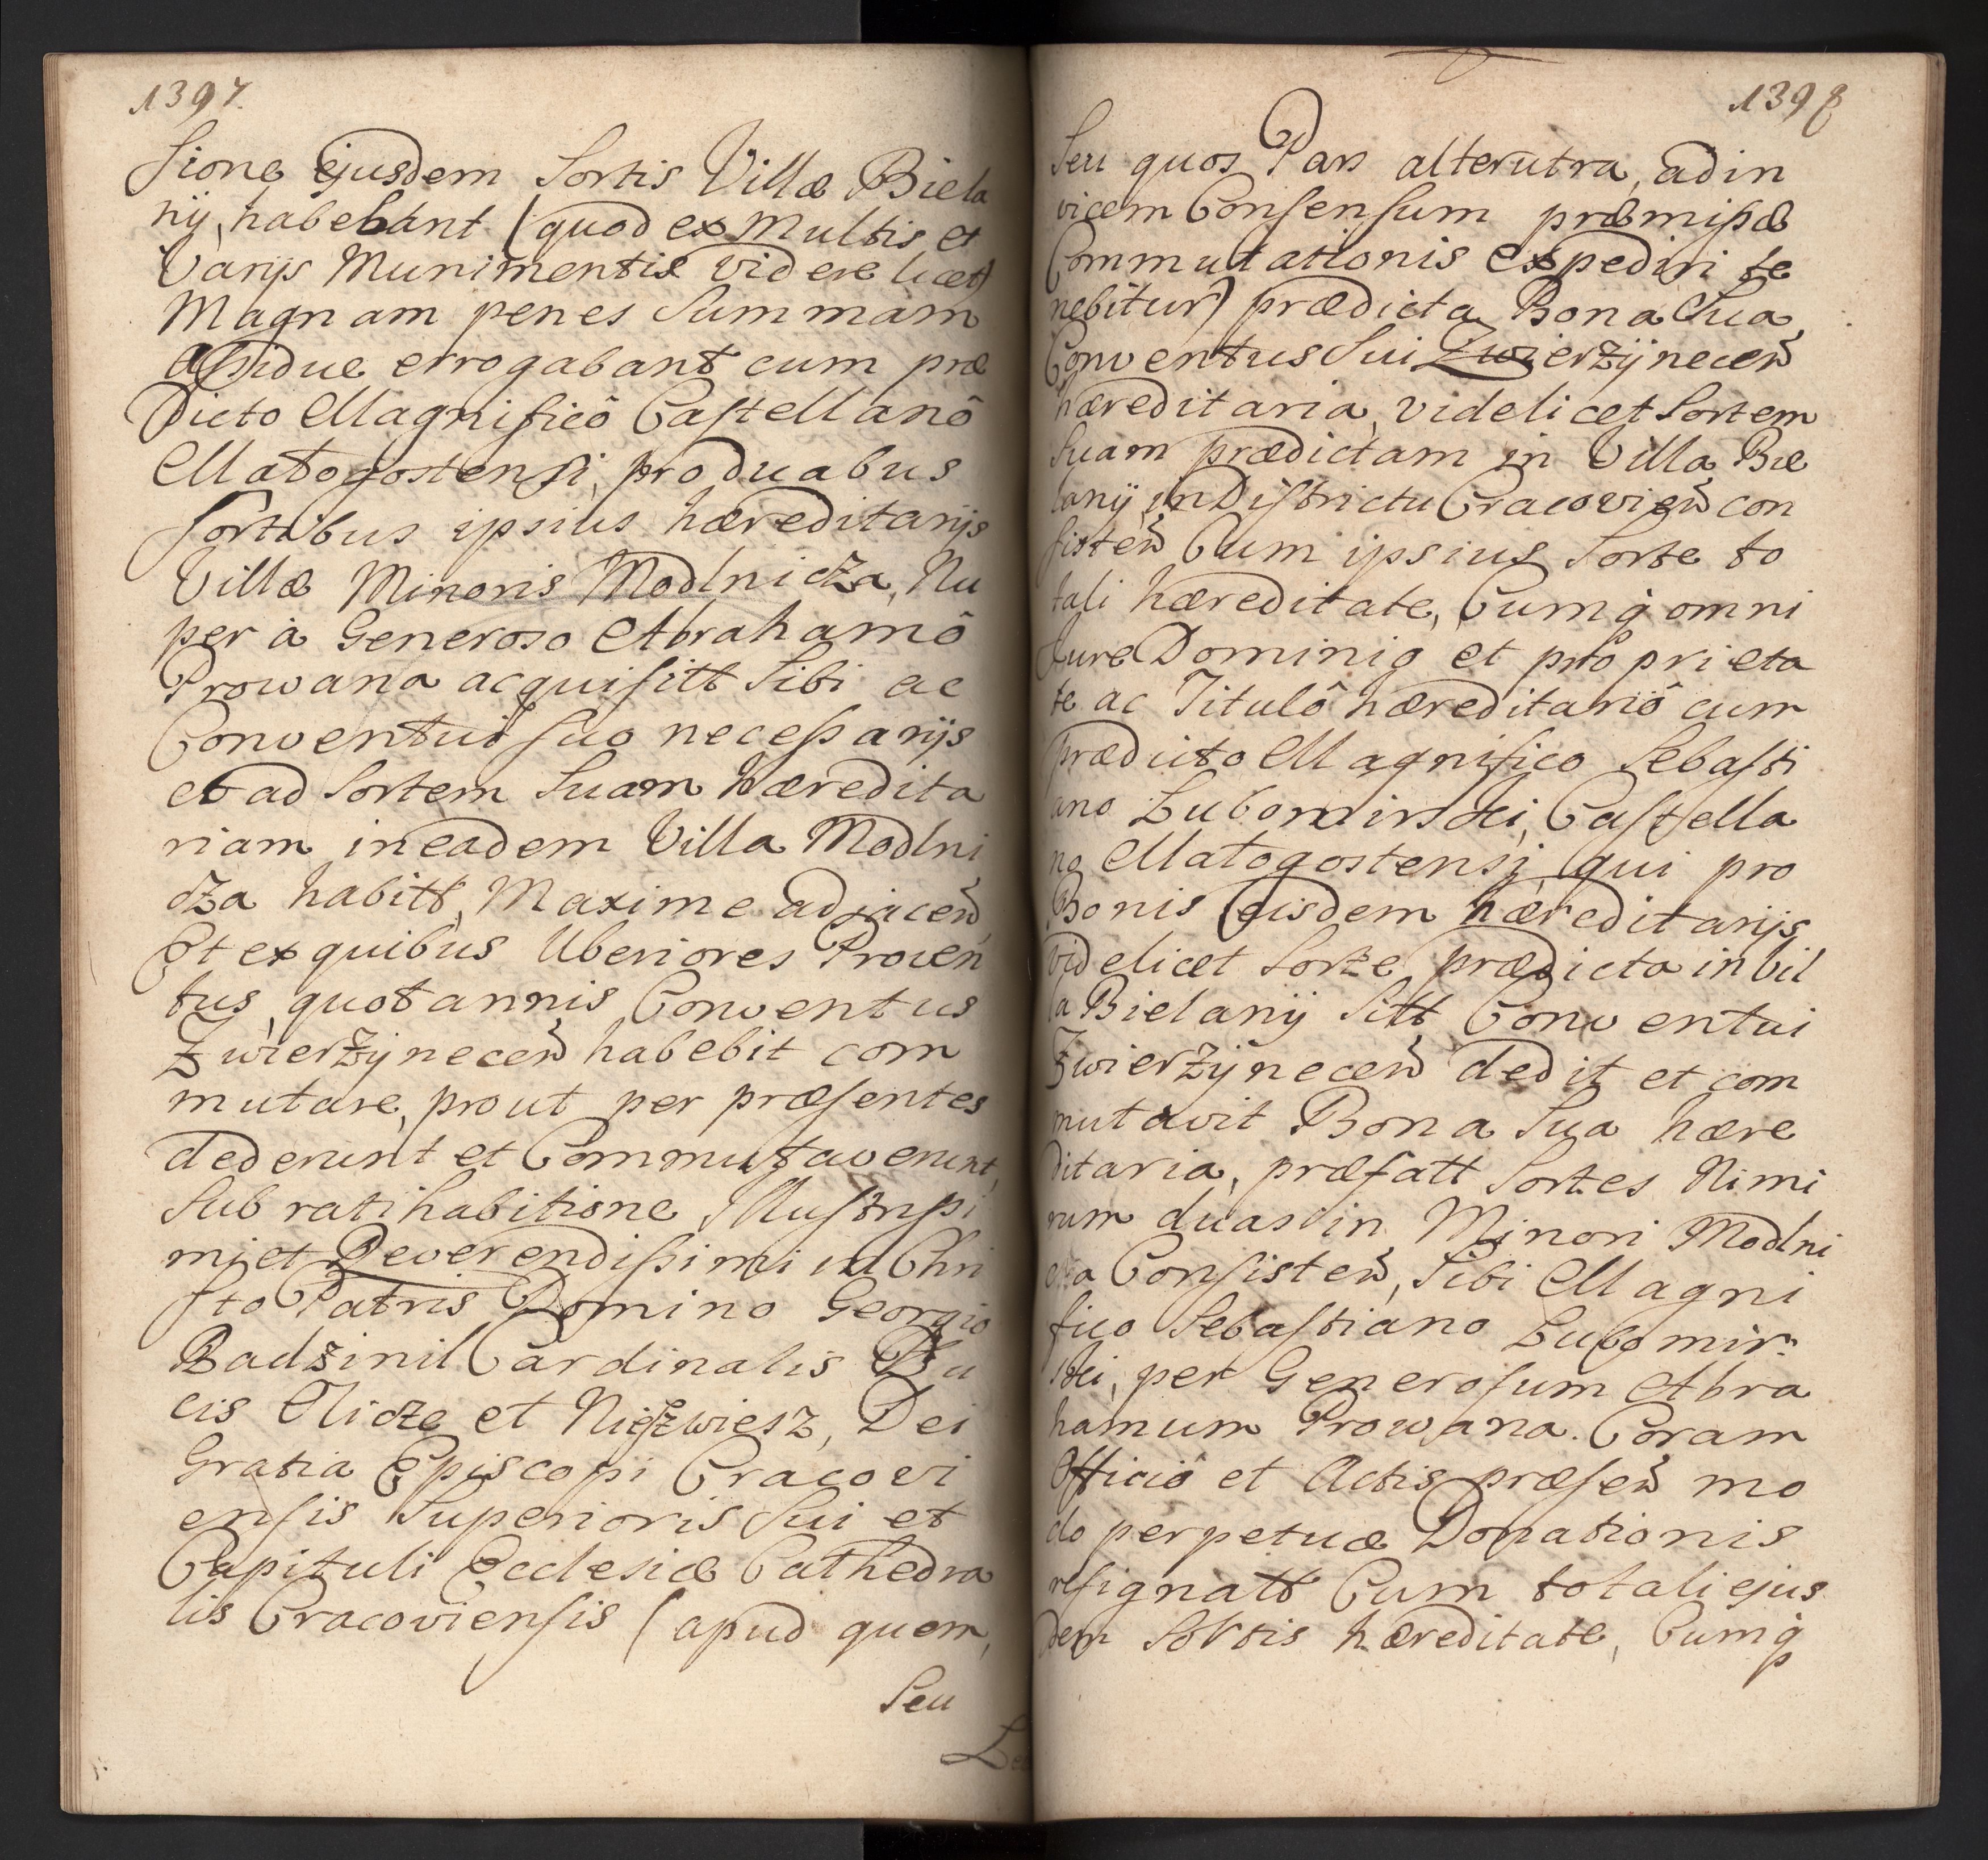 1397.
sione ejusdem Sortis Villæ Biela
nÿ, habebant (quod ex Multis et
Varijs Munimentis videre licet)
Magnam penes Summam
assidue errogabant cum præ
dicto Magnificô Castellanô
Małogostensi, pro duabus
sortibus ipsius hæreditarijs
Villæ Minoris Modlnicza, Nu
per à Generoso Abrahamô
Prowana acquisitt Sibi ac
Conventui suo necessarijs
et ad Sortem Suam hæredita
riam in eadem Villa Modlni
cza habitt, Maxime adjaceñ
Et ex quibus Uberiores Proven
tus, quotannis Conventus
Zwierzÿneceñ habebit com
mutare, prout per præsentes
dederunt et Commutaverunt,
Sub ratihabitione Illustrissi
mi et Reverendissimi in Chri
sto Patris Domino Georgio
Radziwil Cardinalis Du
cis Olicze et Nieszwiesz, Dei
Gratia Episcopi Cracovi
ensis Superioris Sui et
Capituli Ecclesiæ Cathedra
lis Cracoviensis (apud quem,
Seu
1398
Seu quos Pars alterutra, ad in
vicem Consensum præmissæ
Commutationis expediri te
nebitur) prædicta Bona Sua,
Conventus Sui Zwierzÿneceñ
hæreditaria, videlicet Sortem
Suam prædictam in Villa Bie
lanÿ, in Districtu Cracovieñ con
sisteñ Cum ipsius Sorte to
tali hæreditate, Cumq́ omni
Jure Dominio et proprieta
te ac Titulô hæreditariô cum
prædicto Magnifico Sebasti
ano Lubomirski, Castella
no Małogostensi, qui pro
Bonis eisdem hæreditarijs
videlicet Sorte prædicta in Vil
la Bielanÿ Sitt Conventui
Zwierzÿneceñ dedit et com
mutavit Bona Sua hære
ditaria, præfatt Sortes Nimi
rum duas in Minori Modlni
cza Consisteñ, Sibi Magni
fico Sebastiano Lubomir:
ski, per Generosum Abra
hamum Prowana. Coram
Officiô et Actis præseñ mo
do perpetuæ Donationis
resignatt Cum totali ejus
dem Sortis hæreditate, Cumq́